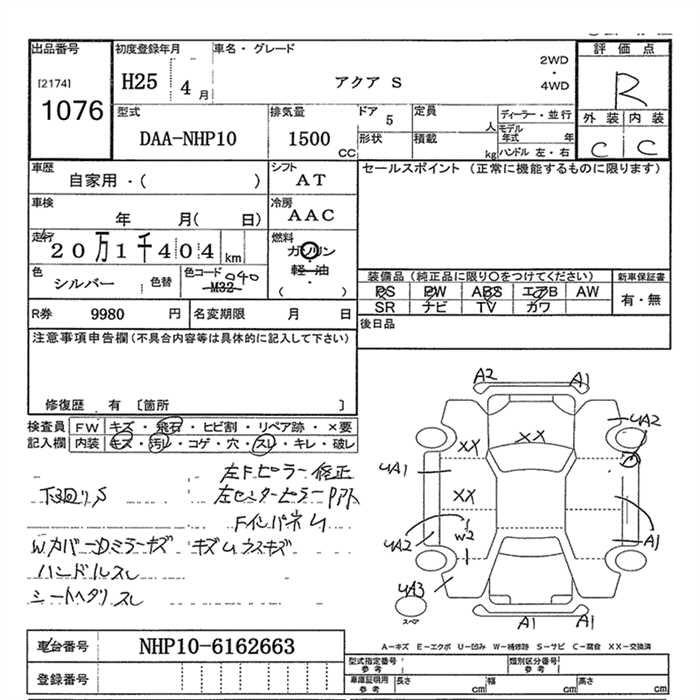 出品番号
[2174]
1076
初度登録年月
H25
4 月
車名・グレード
アクア S
2WD
・
4WD
評価点
R
外装 内装
C C
型式
DAA-NHP10
排気量
1500
CC
ドア
5
定員
人
形状
積載
kg
ディーラー・並行
モデル年式 年
ハンドル 左・右
車歴
自家用・( )
シフト
AT
セールスポイント (正常に機能するものに限ります)
車検
年 月( 日)
冷房
AAC
走行
20万1千404 km
燃料
ガソリン
・
軽油
・
( )
色
シルバー 色替
色コード 040
M32
装備品 (純正品に限り○をつけてください)
PS PW ABS エアB AW
SR ナビ TV カワ
新車保証書
有・無
R券 9980 円
名変期限 月 日
後日品
注意事項申告欄(不具合内容等は具体的に記入して下さい)
修復歴 有 〔箇所 〕
検査員
記入欄
FW キズ・飛石・ヒビ割・リペア跡・×要
内装 キズ・汚レ・コゲ・穴・スレ・キレ・破レ
左Fピラー修正
下廻りS
左センターピラー
Fインパネム
ハンドルスレ
A2 A1
UA2
XX
XX
UA1
XX
W2
UA2
A1
UA3
スペア
A1 A1
A-キズ E-エクボ U-凹み W-補修跡 S-サビ C-腐食 XX-交換済
車台番号
NHP10-6162663
登録番号
型式指定番号
参考
類別区分番号
参考
車庫証明用
参考
長さ cm
幅 cm
高さ cm